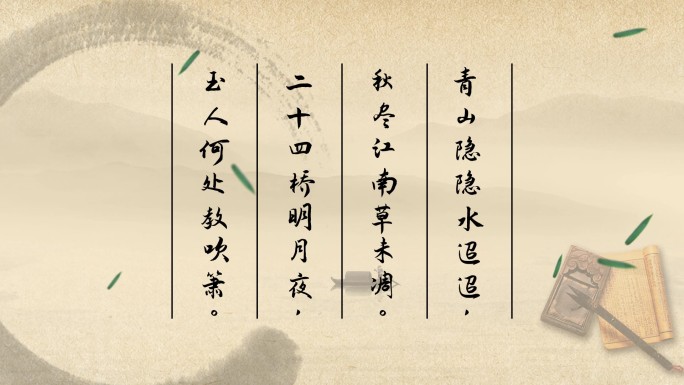 青山隐隐水迢迢，
秋尽江南草未凋。
二十四桥明月夜，
玉人何处教吹箫。